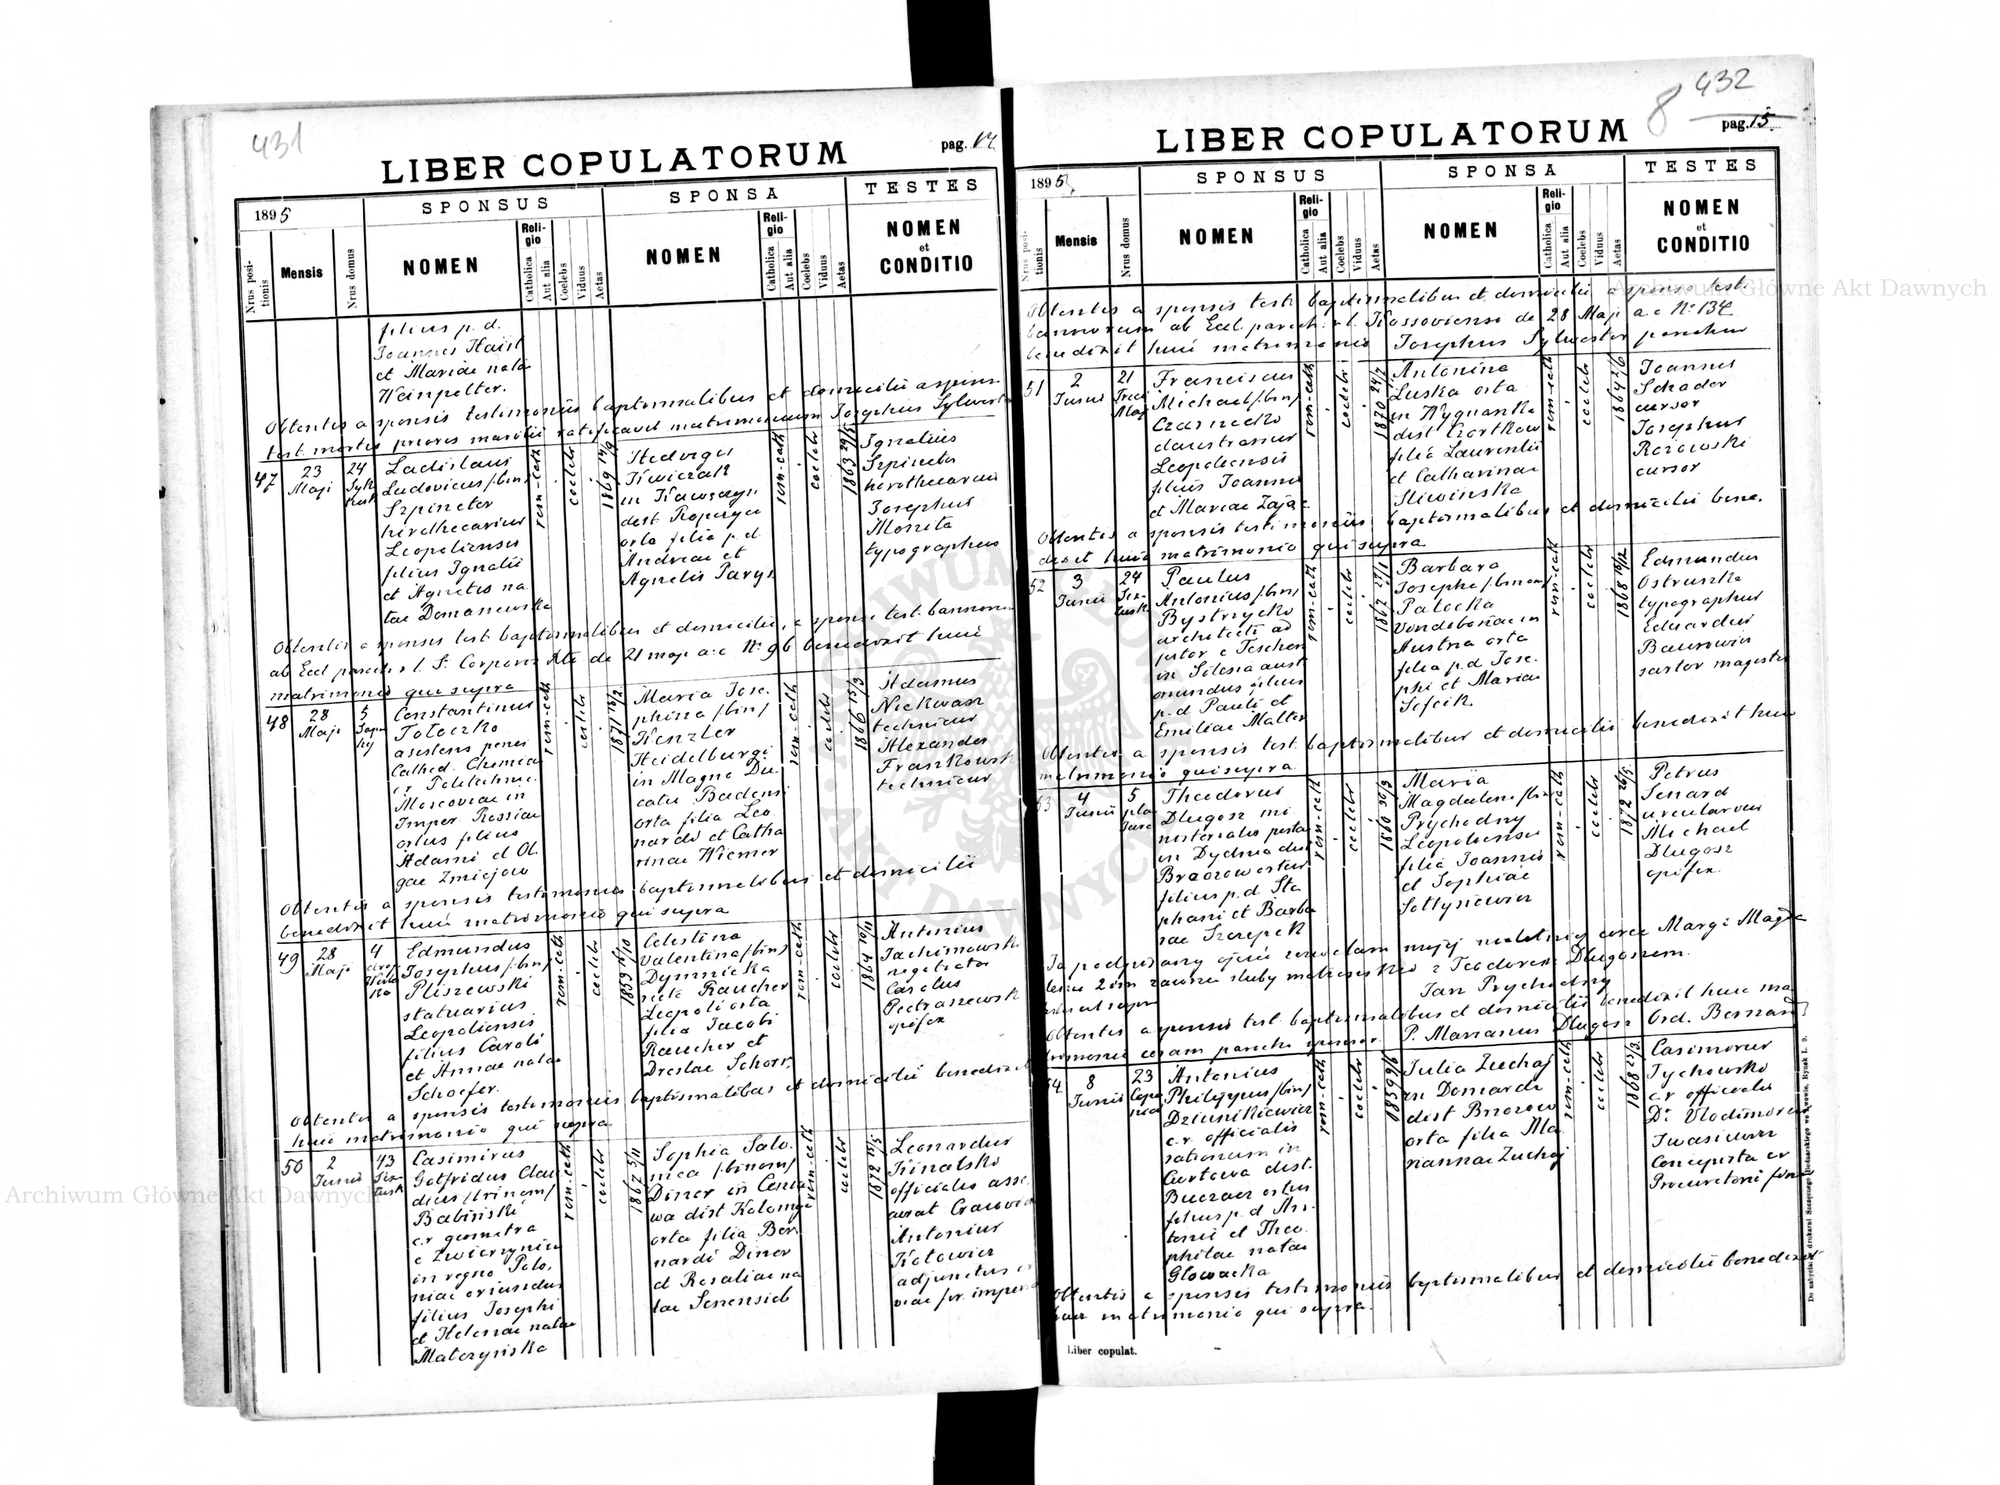 431
LIBER COPULATORUM
pag. 14
1895
SPONSUS
SPONSA
TESTES
Nrus positionis
Mensis
Nrus domus
NOMEN
Religio
Catholica
Aut alia
Coelebs
Viduus
Aetas
NOMEN
Religio
Catholica
Aut alia
Coelebs
Viduus
Aetas
NOMEN
et
CONDITIO
filius p. d.
Joannes Haist
et Mariae natae
Weinpelter.
Obtentis a sponsis testimoniis baptismalibus et domicilii a sponsa
test. mortis prioris mariti ratificavit matrimonium Josephus Sylwester
47
23
Maji
24
Ladislaus
Ludovicus /bin/
Szpineter
hirothecarius
Leopoliensis
filius Ignatii
et Agnetis na
tae Domanewska
rom-cath
coelebs
1869 14/9
Hedvigis
Kwiczak
in Kawęczyn
dist Ropczyce
orta filia p. d.
Andreae et
Agnetis Parys
rom-cath
coelebs
1863 29/5
Ignatius
Szpineter
hirothecarius
Josephus
Moneta
typographus
Obtentis a sponsis test. baptismalibus et domicilii, a sponsa test. bannorum
ab Eccl paroch r. l. S. Corporis de 21 maji a: c. N: 96 benedixit huic
matrimonio qui supra
48
28
Maji
5
Constantinus
Toloczko
asistens penes
Cathed. Chemiae
Moscoviae in
Imper Rossiae
ortus filius
Adami et Ol
gae Zmiejow
rom-cath
coelebs
Maria Jose
phina /bin/
Kenzler
Heidelburgi
in Magno Du
catu Badensi
orta filia Leo
nardi et Catha
rinae Wiemer
rom-cath
coelebs
1866 15/3
Adamus
Niekwasz
technicus
Alexander
Frankowski
technicus
Obtentis a sponsis testimoniis baptismalibus et domicilii
benedixit huic matrimonio qui supra
49
28
Maji
4
Edmundus
Josephus /bin/
Pliszewski
statuarius
Leopoliensis
filius Caroli
et Annae natae
Schoefer.
rom-cath
coelebs
Celestina
Valentina /bin/
Dymnicka
recte Raucher
Leopoli orta
filia Jacobi
Raucher et
Dreslae Schorr
rom-cath
coelebs
1864 10/11
Antonius
Jachimowski
registrator
Carolus
Pietraszewski
opifex
Obtentis a sponsis testimoniis baptismalibus et domicilii benedixit
huic matrimonio qui supra
50
2
Junii
43
Casimirus
Gotfridus Clau
dius /trinom/
Babiński
c.r geometra
e Zwierzyniec
in regno Polo
niae oriundus
filius Josephi
et Helenae natae
Matczyńska
rom-cath
coelebs
1862 5/11
Sophia Salo
mea /binom/
Diner in Cenia
wa dist Kolomyja
orta filia Ber
nardi Diner
et Rosaliae na
tae Senensieb
rom-cath
coelebs
1872 15/5
Leonardus
officialis asse
curat Cracovien
Antonius
Kotowicz
adjunctus
viae fer. imper
432
8
LIBER COPULATORUM
pag. 15
1895
SPONSUS
SPONSA
TESTES
Nrus positionis
Mensis
Nrus domus
NOMEN
Religio
Catholica
Aut alia
Coelebs
Viduus
Aetas
NOMEN
Religio
Catholica
Aut alia
Coelebs
Viduus
Aetas
NOMEN
et
CONDITIO
Obtentis a sponsis test. baptismalibus et domicilii a sponso test.
bannorum ab Eccl. paroch. r. l. Kossoviensi de 28 Maji a: c N: 134
benedixit huic matrimonio Josephus Sylwester parochus
51
2
Junii
21
Franciscus
Michael /bin/
Czarnecki
claustrarius
Leopoliensis
filius Joannis
et Mariae Zając
rom-cath
coelebs
1870 24/7
Antonina
Luska orta
in Wygnanka
dist Czortkow
filia Laurentii
et Catharinae
Sliwińska
rom-cath
coelebs
1864 2/6
Joannes
Schader
cursor
Josephus
cursor
Obtentis a sponsis testimoniis baptismalibus et domicilii bene
dixit huic matrimonio qui supra
52
3
Junii
24
Paulus
Antonius /bin/
Bystrzycki
architecti ad
jutor e Teschen
in Silesia aust
oriundus filius
p. d Pauli et
Emiliae Malter
rom-cath
coelebs
1862 27/1
Barbara
Josepha /binom/
Patocka
Vondobonae in
Austria orta
filia p. d Jose
phi et Mariae
Sofcik.
rom-cath
coelebs
1868 10/12
Edmundus
Ostruszka
typographus
Eduardus
sartor magister
Obtentis a sponsis test. baptismalibus et domicilii benedixit huic
matrimonio qui supra.
53
4
Junii
5
Theodorus
Długosz mi
nisterialis postae
in Dydnia dist
Brzozow ortus
filius p. d. Ste
phani et Barba
rae Szczepek
rom-cath
coelebs
1860 30/3
Maria
Magdalena /bin/
Prychodny
Leopoliensis
filia Joannis
et Sophiae
Sołtysiewicz
rom-cath
coelebs
1872 26/5
Petrus
Senard
arcularius
Michael
Długosz
opifex
Ja podpisany ojciec zezwalam mojej nieletniej córce Maryi Magda
lenie 2im zawrzeć śluby małżeńskie z Teodorem Długoszem.
Jan Prychodny
Obtentis a sponsis test. baptismalibus et domicilii benedixit huic ma
trimonio coram parocho sponsor. P. Marianus Długosz Ord. Bernard
54
8
Junii
23
Antonius
Philippus /bin/
Dziunikiewicz
c.r. officialis
rationum in
dist.
Buczacz ortus
filius p. d An
tonii et Theo
philae natae
Glowacka
rom-cath
coelebs
1859 9/6
Julia Zuchaj
in Domaradz
dist Brzozow
orta filia Ma
riannae Zuchaj
rom-cath
coelebs
1868 25/3
Casimirus
Tychowski
c.r officialis
Dr. Vlodimirus
Iwasieczko
Concipista cr
Procuratorii fin
Obtentis a sponsis testimoniis baptismalibus et domicilii benedixit
huic matrimonio qui supra.
Liber copulat.
Do nabycia w drukarni Szczęsnego Bednarskiego we Lwowie, Rynek l. 9.
Archiwum Główne Akt Dawnych
Archiwum Główne Akt Dawnych
ARCHIWUM GŁÓWNE AKT DAWNYCH